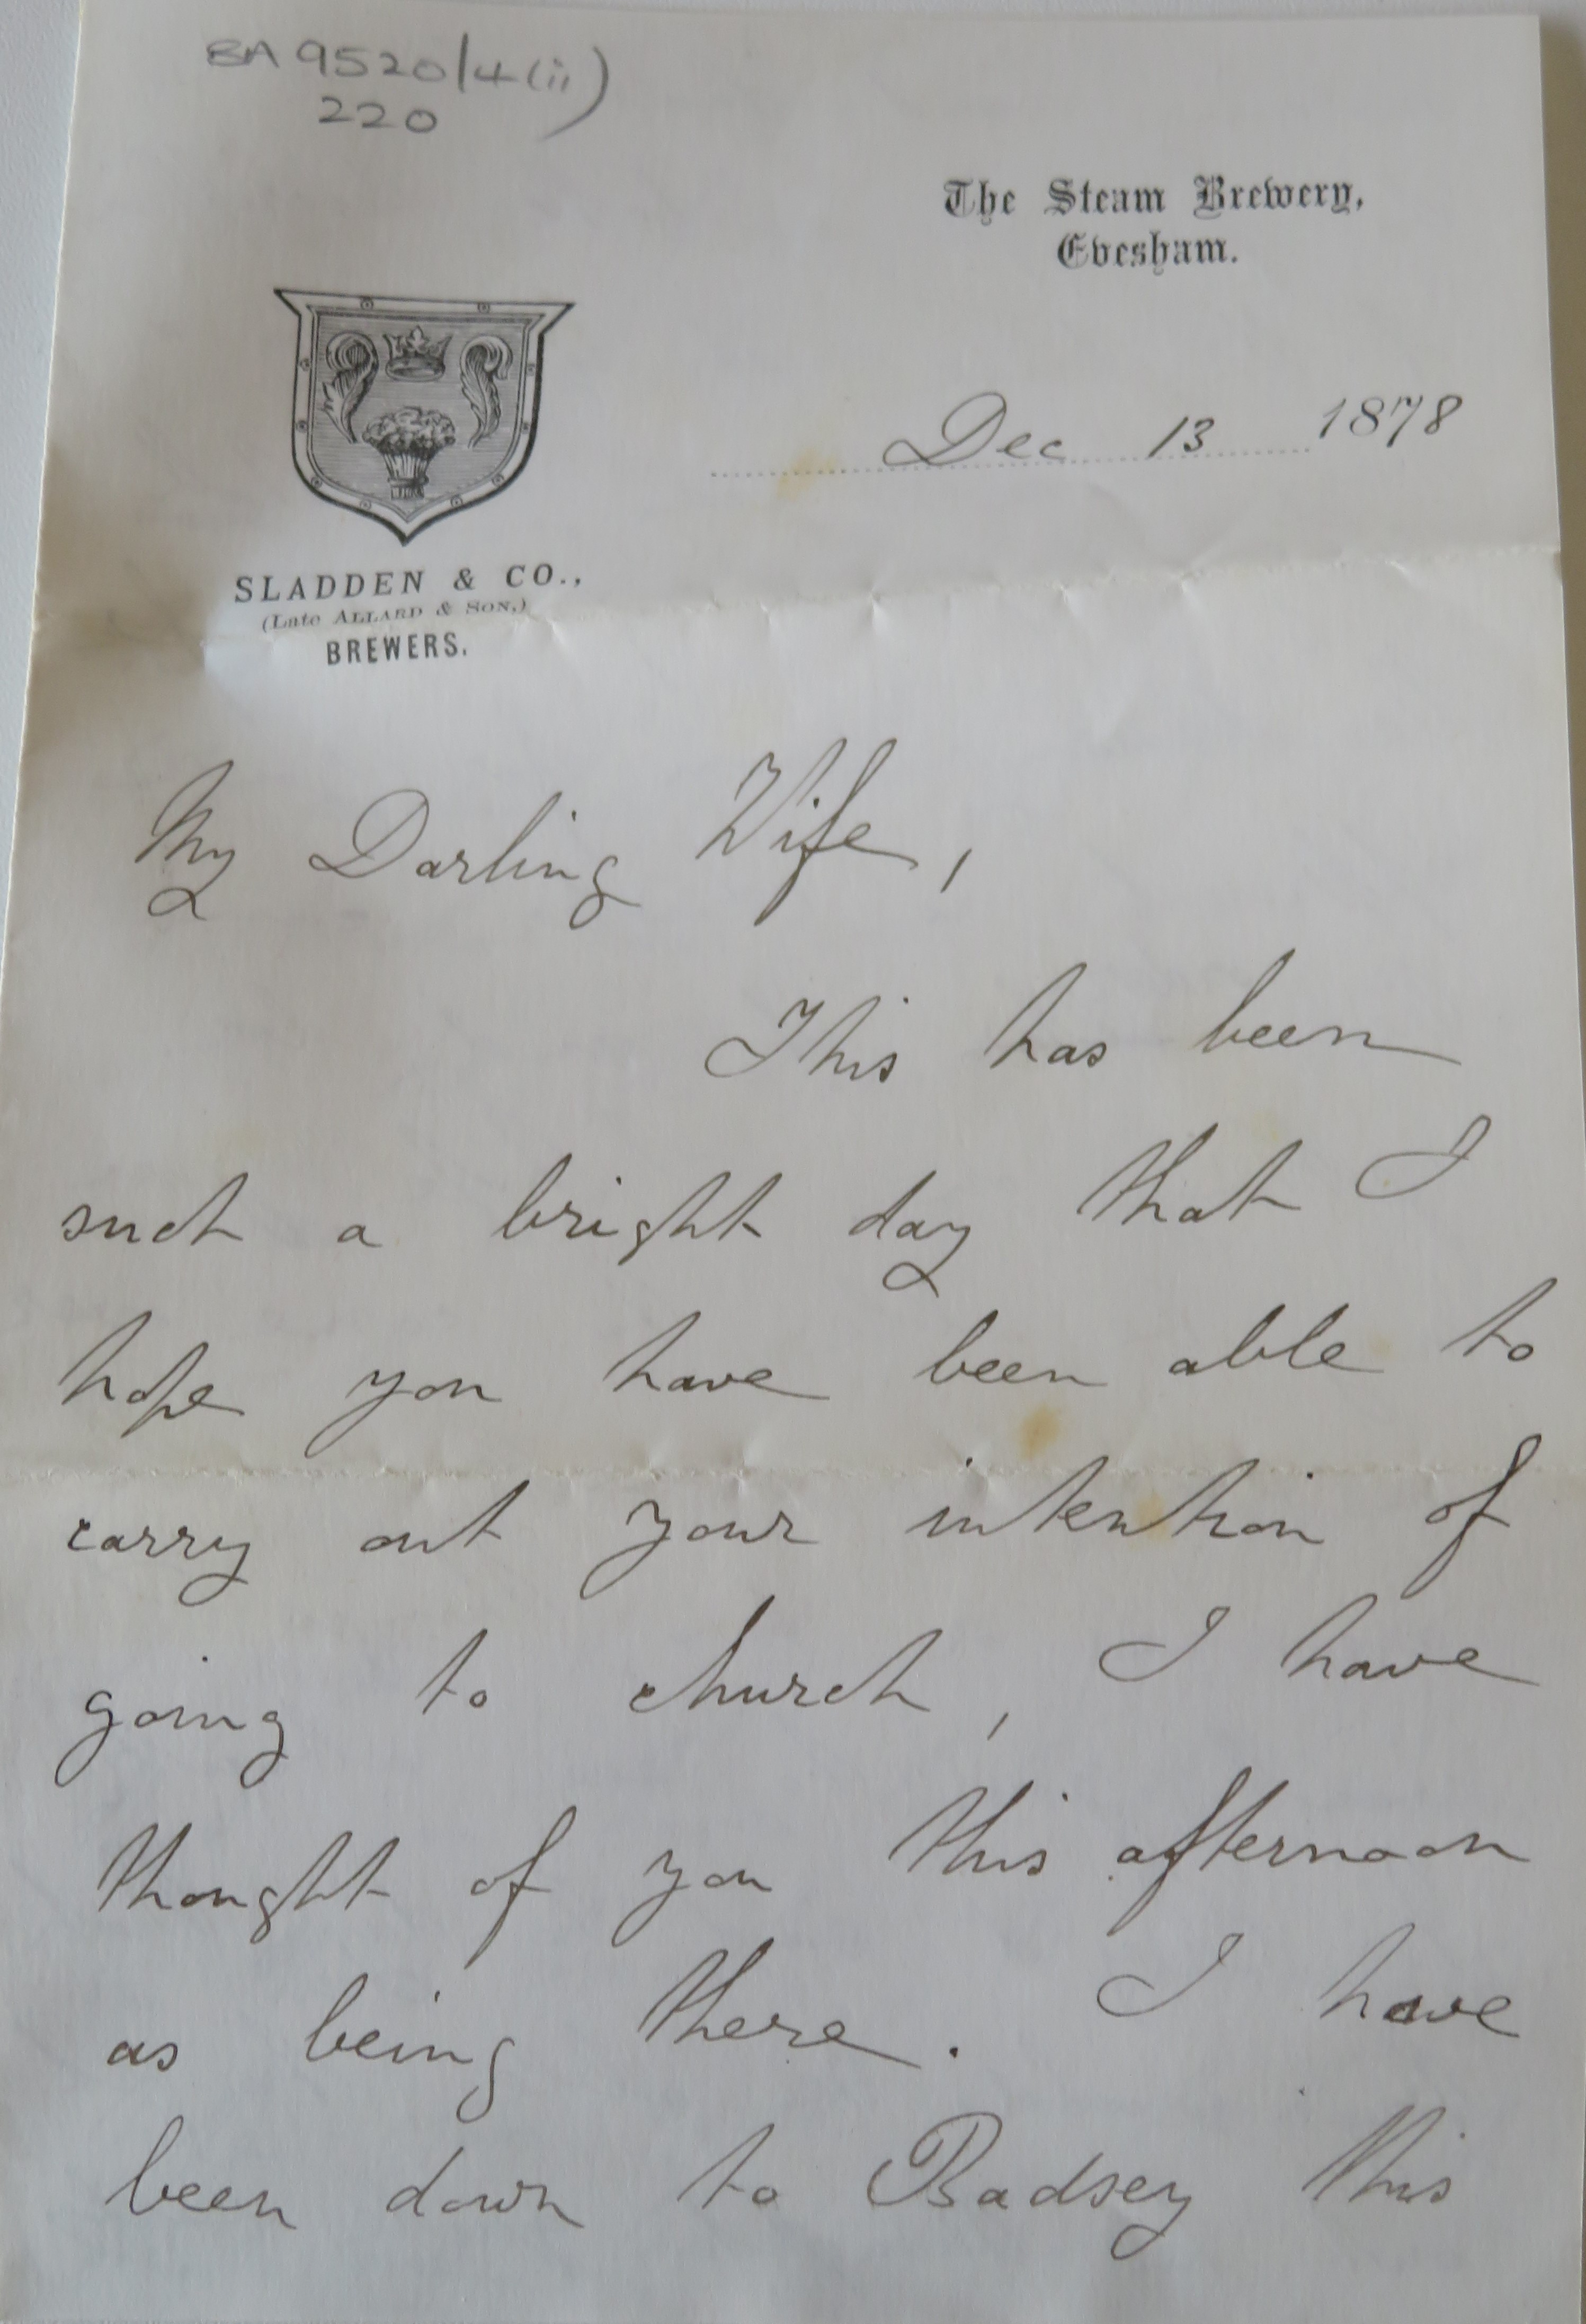 BA 9520/4(ii)
220
The Steam Brewery,
Evesham.
Dec 13 1878
SLADDEN & CO.,
(Late ALLARD & SON,)
BREWERS.
My Darling Wife,
This has been
such a bright day that I
hope you have been able to
carry out your intention of
going to church, I have
thought of you this afternoon
as being there. I have
been down to Badsey this